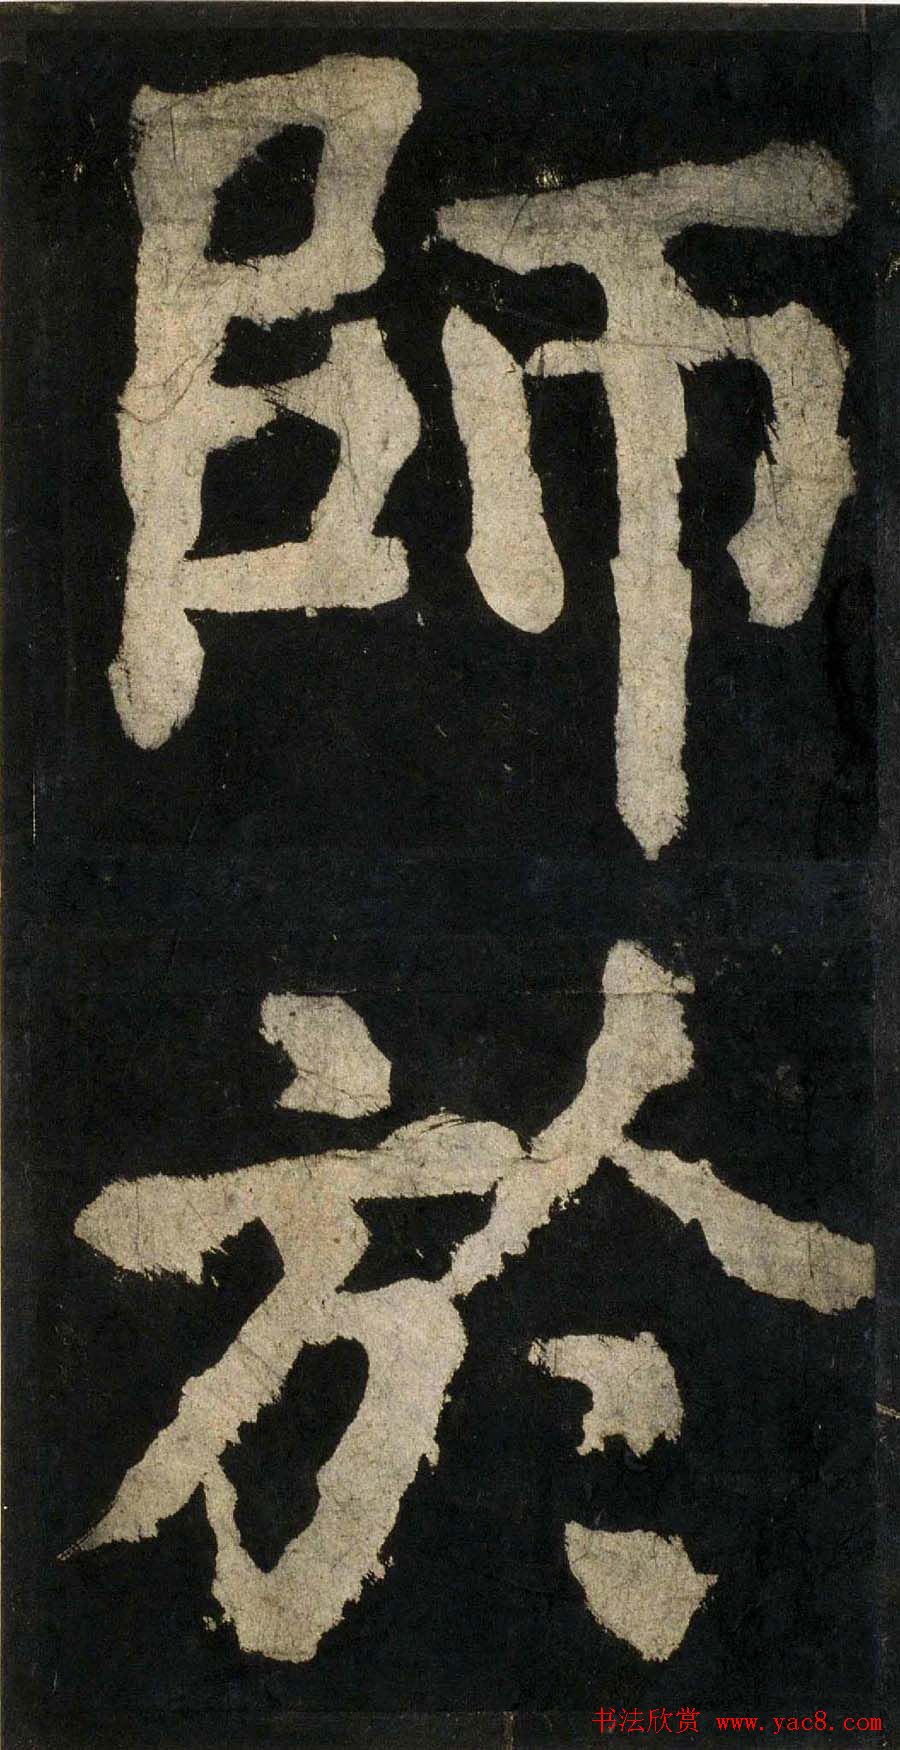 師
於
书法欣赏 www.yac8.com